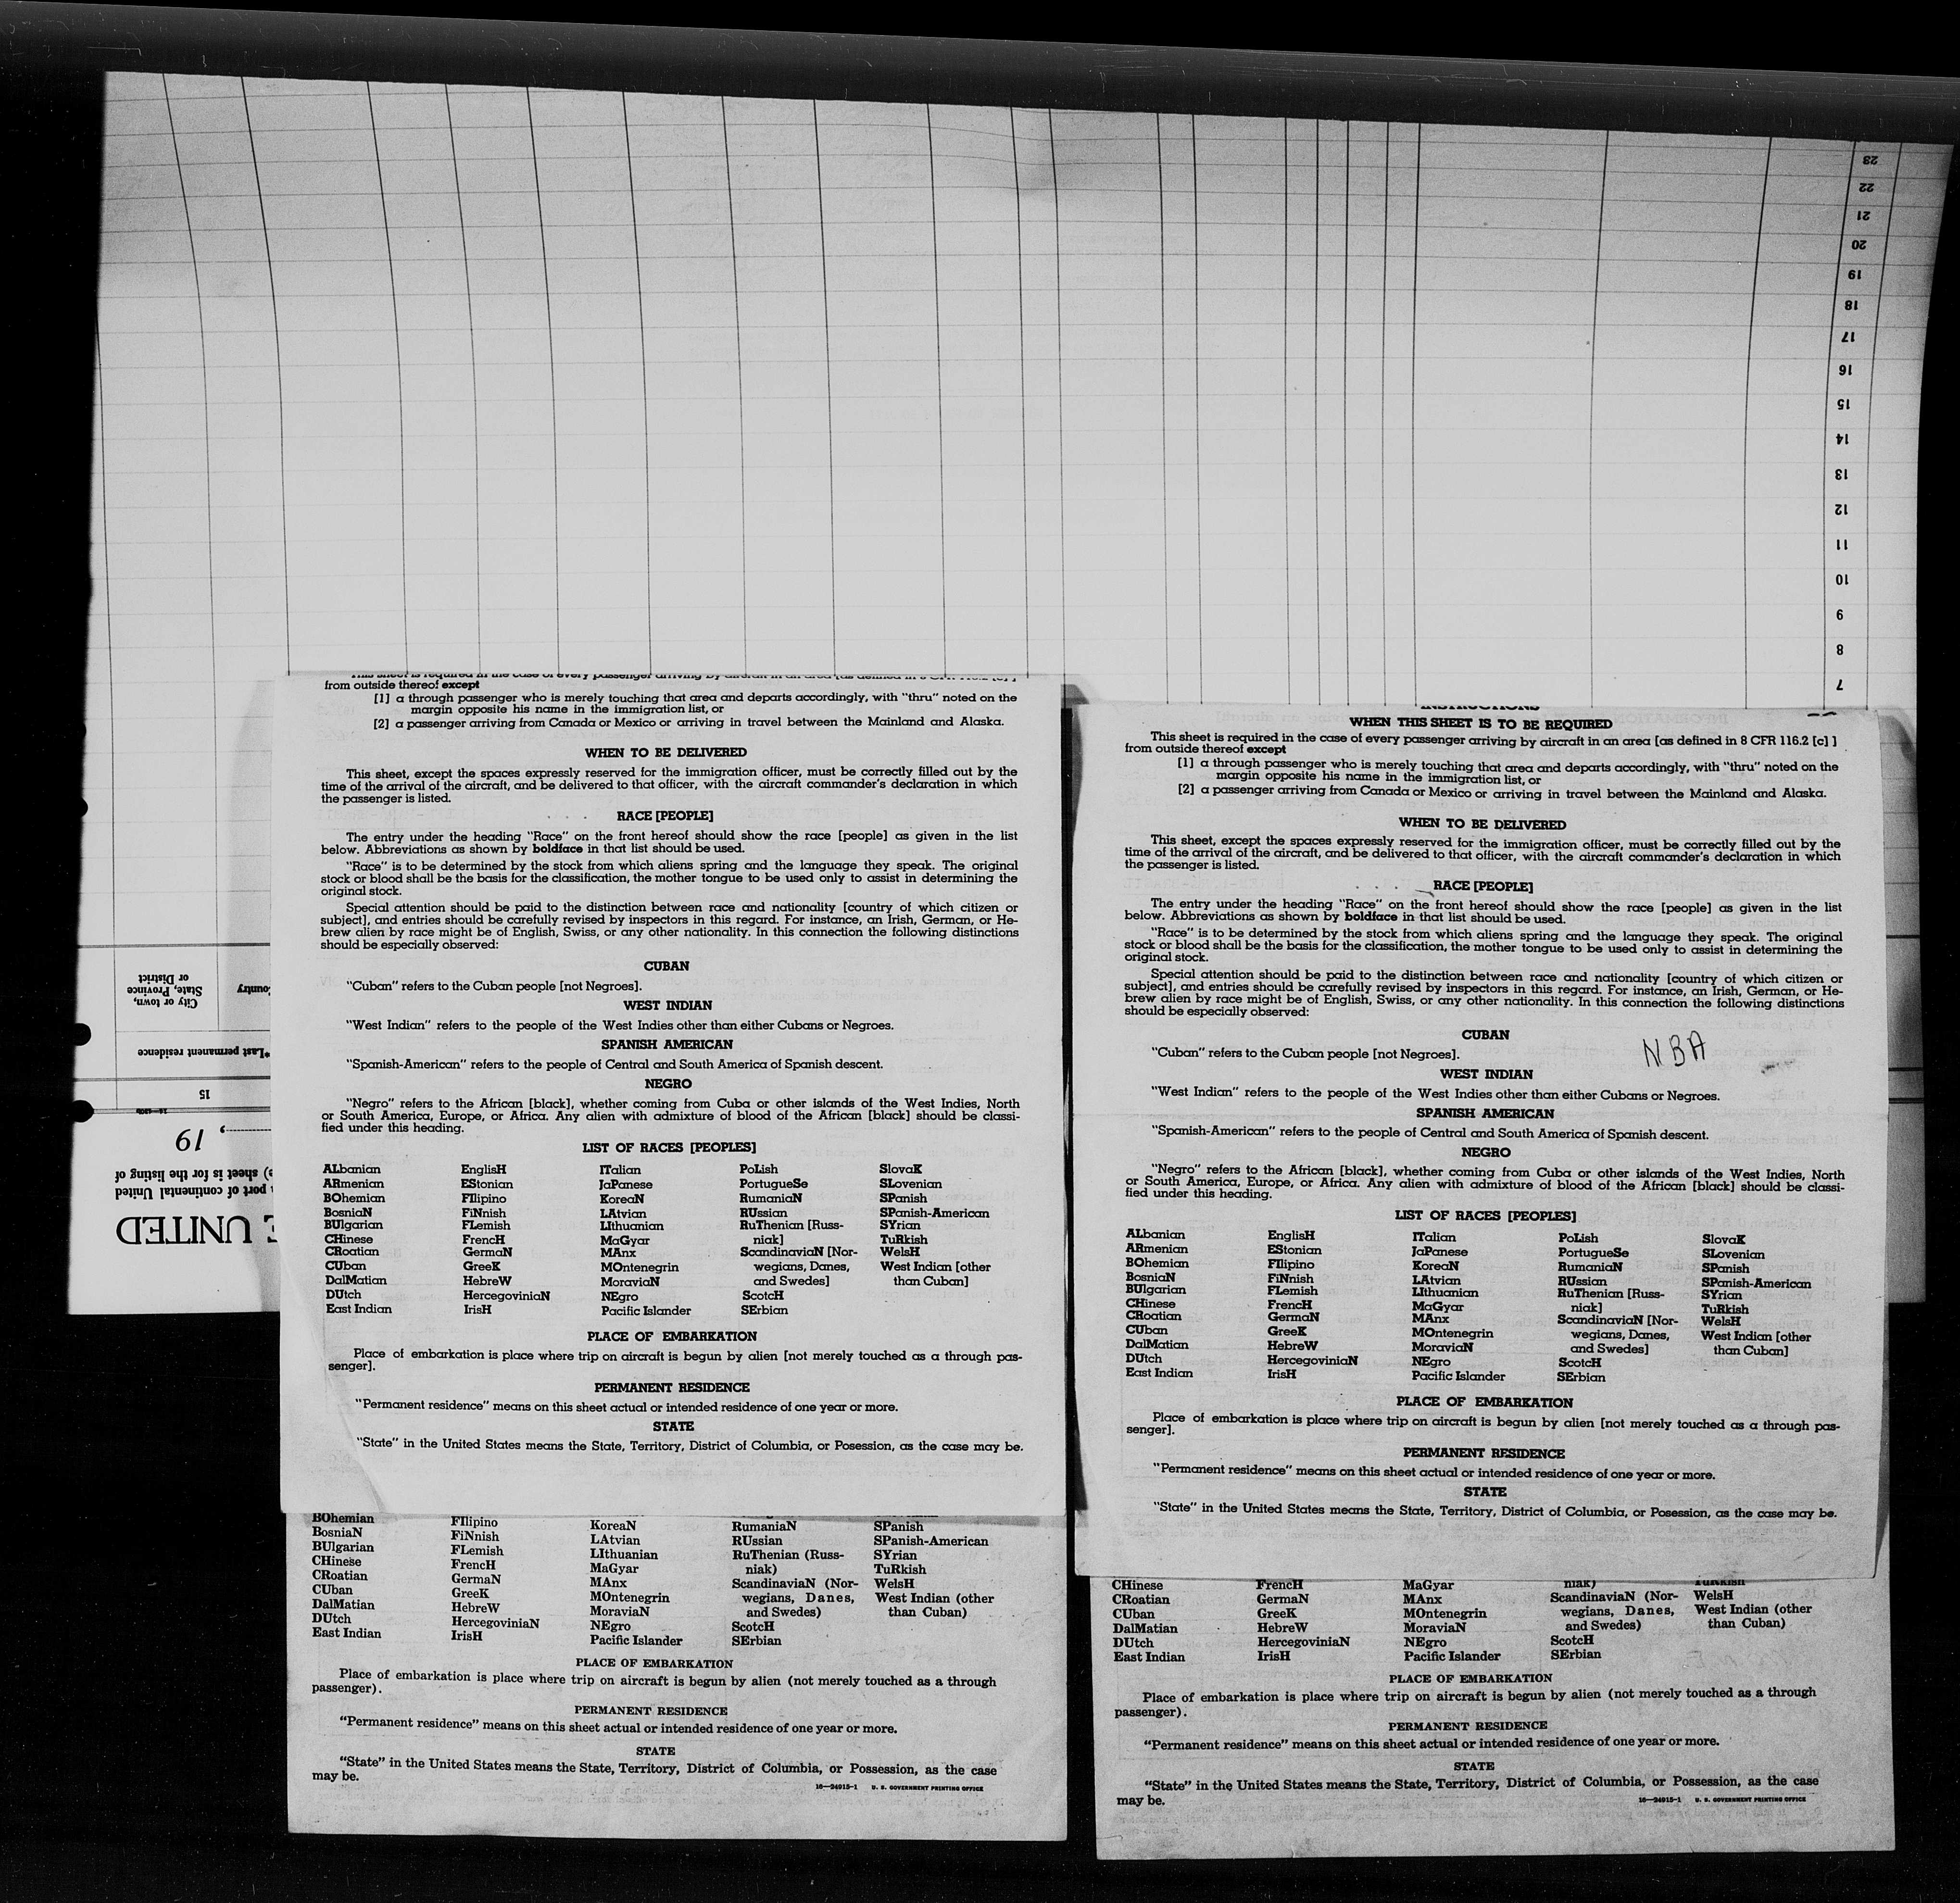 23
22
21
20
19
18
17
16
15
14
13
12
11
10
9
8
7
15
*Last permanent residence
City or town, State, Province or District
Country
, 19
) sheet is for the listing of
port of continental United
UNITED
This sheet is required in the case of every passenger arriving by aircraft in an area [as defined in 8 CFR 116.2 [c] ]
from outside thereof except
[1] a through passenger who is merely touching that area and departs accordingly, with "thru" noted on the
margin opposite his name in the immigration list, or
[2] a passenger arriving from Canada or Mexico or arriving in travel between the Mainland and Alaska.
WHEN TO BE DELIVERED
This sheet, except the spaces expressly reserved for the immigration officer, must be correctly filled out by the
time of the arrival of the aircraft, and be delivered to that officer, with the aircraft commander's declaration in which
the passenger is listed.
RACE [PEOPLE]
The entry under the heading "Race" on the front hereof should show the race [people] as given in the list
below. Abbreviations as shown by boldface in that list should be used.
"Race" is to be determined by the stock from which aliens spring and the language they speak. The original
stock or blood shall be the basis for the classification, the mother tongue to be used only to assist in determining the
original stock.
Special attention should be paid to the distinction between race and nationality [country of which citizen or
subject], and entries should be carefully revised by inspectors in this regard. For instance, an Irish, German, or He-
brew alien by race might be of English, Swiss, or any other nationality. In this connection the following distinctions
should be especially observed:
CUBAN
"Cuban" refers to the Cuban people [not Negroes].
WEST INDIAN
"West Indian" refers to the people of the West Indies other than either Cubans or Negroes.
SPANISH AMERICAN
"Spanish-American" refers to the people of Central and South America of Spanish descent.
NEGRO
"Negro" refers to the African [black], whether coming from Cuba or other islands of the West Indies, North
or South America, Europe, or Africa. Any alien with admixture of blood of the African [black] should be classi-
fied under this heading.
LIST OF RACES [PEOPLES]
ALbanian EnglisH ITalian PoLish SlovaK
ARmenian EStonian JaPanese PortugueSe SLovenian
BOhemian FIlipino KoreaN RumaniaN SPanish
BosniaN FiNnish LAtvian RUssian SPanish-American
BUlgarian FLemish LIthuanian RuThenian [Russ- SYrian
CHinese FrencH MaGyar niak] TuRkish
CRoatian GermaN MAnx ScandinaviaN [Nor- WelsH
CUban GreeK MOntenegrin wegians, Danes, West Indian [other
DalMatian HebreW MoraviaN and Swedes] than Cuban]
DUtch HercegoviniaN NEgro ScotcH
East Indian IrisH Pacific Islander SErbian
PLACE OF EMBARKATION
Place of embarkation is place where trip on aircraft is begun by alien [not merely touched as a through pas-
senger].
PERMANENT RESIDENCE
"Permanent residence" means on this sheet actual or intended residence of one year or more.
STATE
"State" in the United States means the State, Territory, District of Columbia, or Posession, as the case may be.
BOhemian FIlipino KoreaN RumaniaN SPanish
BosniaN FiNnish LAtvian RUssian SPanish-American
BUlgarian FLemish LIthuanian RuThenian (Russ- SYrian
CHinese FrencH MaGyar niak) TuRkish
CRoatian GermaN MAnx ScandinaviaN (Nor- WelsH
CUban GreeK MOntenegrin wegians, Danes, West Indian (other
DalMatian HebreW MoraviaN and Swedes) than Cuban)
DUtch HercegoviniaN NEgro ScotcH
East Indian IrisH Pacific Islander SErbian
PLACE OF EMBARKATION
Place of embarkation is place where trip on aircraft is begun by alien (not merely touched as a through
passenger).
PERMANENT RESIDENCE
"Permanent residence" means on this sheet actual or intended residence of one year or more.
STATE
"State" in the United States means the State, Territory, District of Columbia, or Possession, as the case
may be.
16—24915-1 U. S. GOVERNMENT PRINTING OFFICE
INSTRUCTIONS
WHEN THIS SHEET IS TO BE REQUIRED
This sheet is required in the case of every passenger arriving by aircraft in an area [as defined in 8 CFR 116.2 [c] ]
from outside thereof except
[1] a through passenger who is merely touching that area and departs accordingly, with "thru" noted on the
margin opposite his name in the immigration list, or
[2] a passenger arriving from Canada or Mexico or arriving in travel between the Mainland and Alaska.
WHEN TO BE DELIVERED
This sheet, except the spaces expressly reserved for the immigration officer, must be correctly filled out by the
time of the arrival of the aircraft, and be delivered to that officer, with the aircraft commander's declaration in which
the passenger is listed.
RACE [PEOPLE]
The entry under the heading "Race" on the front hereof should show the race [people] as given in the list
below. Abbreviations as shown by boldface in that list should be used.
"Race" is to be determined by the stock from which aliens spring and the language they speak. The original
stock or blood shall be the basis for the classification, the mother tongue to be used only to assist in determining the
original stock.
Special attention should be paid to the distinction between race and nationality [country of which citizen or
subject], and entries should be carefully revised by inspectors in this regard. For instance, an Irish, German, or He-
brew alien by race might be of English, Swiss, or any other nationality. In this connection the following distinctions
should be especially observed:
CUBAN
"Cuban" refers to the Cuban people [not Negroes].
NBA
WEST INDIAN
"West Indian" refers to the people of the West Indies other than either Cubans or Negroes.
SPANISH AMERICAN
"Spanish-American" refers to the people of Central and South America of Spanish descent.
NEGRO
"Negro" refers to the African [black], whether coming from Cuba or other islands of the West Indies, North
or South America, Europe, or Africa. Any alien with admixture of blood of the African [black] should be classi-
fied under this heading.
LIST OF RACES [PEOPLES]
ALbanian EnglisH ITalian PoLish SlovaK
ARmenian EStonian JaPanese PortugueSe SLovenian
BOhemian FIlipino KoreaN RumaniaN SPanish
BosniaN FiNnish LAtvian RUssian SPanish-American
BUlgarian FLemish LIthuanian RuThenian [Russ- SYrian
CHinese FrencH MaGyar niak] TuRkish
CRoatian GermaN MAnx ScandinaviaN [Nor- WelsH
CUban GreeK MOntenegrin wegians, Danes, West Indian [other
DalMatian HebreW MoraviaN and Swedes] than Cuban]
DUtch HercegoviniaN NEgro ScotcH
East Indian IrisH Pacific Islander SErbian
PLACE OF EMBARKATION
Place of embarkation is place where trip on aircraft is begun by alien [not merely touched as a through pas-
senger].
PERMANENT RESIDENCE
"Permanent residence" means on this sheet actual or intended residence of one year or more.
STATE
"State" in the United States means the State, Territory, District of Columbia, or Posession, as the case may be.
CHinese FrencH MaGyar niak) TuRkish
CRoatian GermaN MAnx ScandinaviaN (Nor- WelsH
CUban GreeK MOntenegrin wegians, Danes, West Indian (other
DalMatian HebreW MoraviaN and Swedes) than Cuban)
DUtch HercegoviniaN NEgro ScotcH
East Indian IrisH Pacific Islander SErbian
PLACE OF EMBARKATION
Place of embarkation is place where trip on aircraft is begun by alien (not merely touched as a through
passenger).
PERMANENT RESIDENCE
"Permanent residence" means on this sheet actual or intended residence of one year or more.
STATE
"State" in the United States means the State, Territory, District of Columbia, or Possession, as the case
may be.
16—24915-1 U. S. GOVERNMENT PRINTING OFFICE